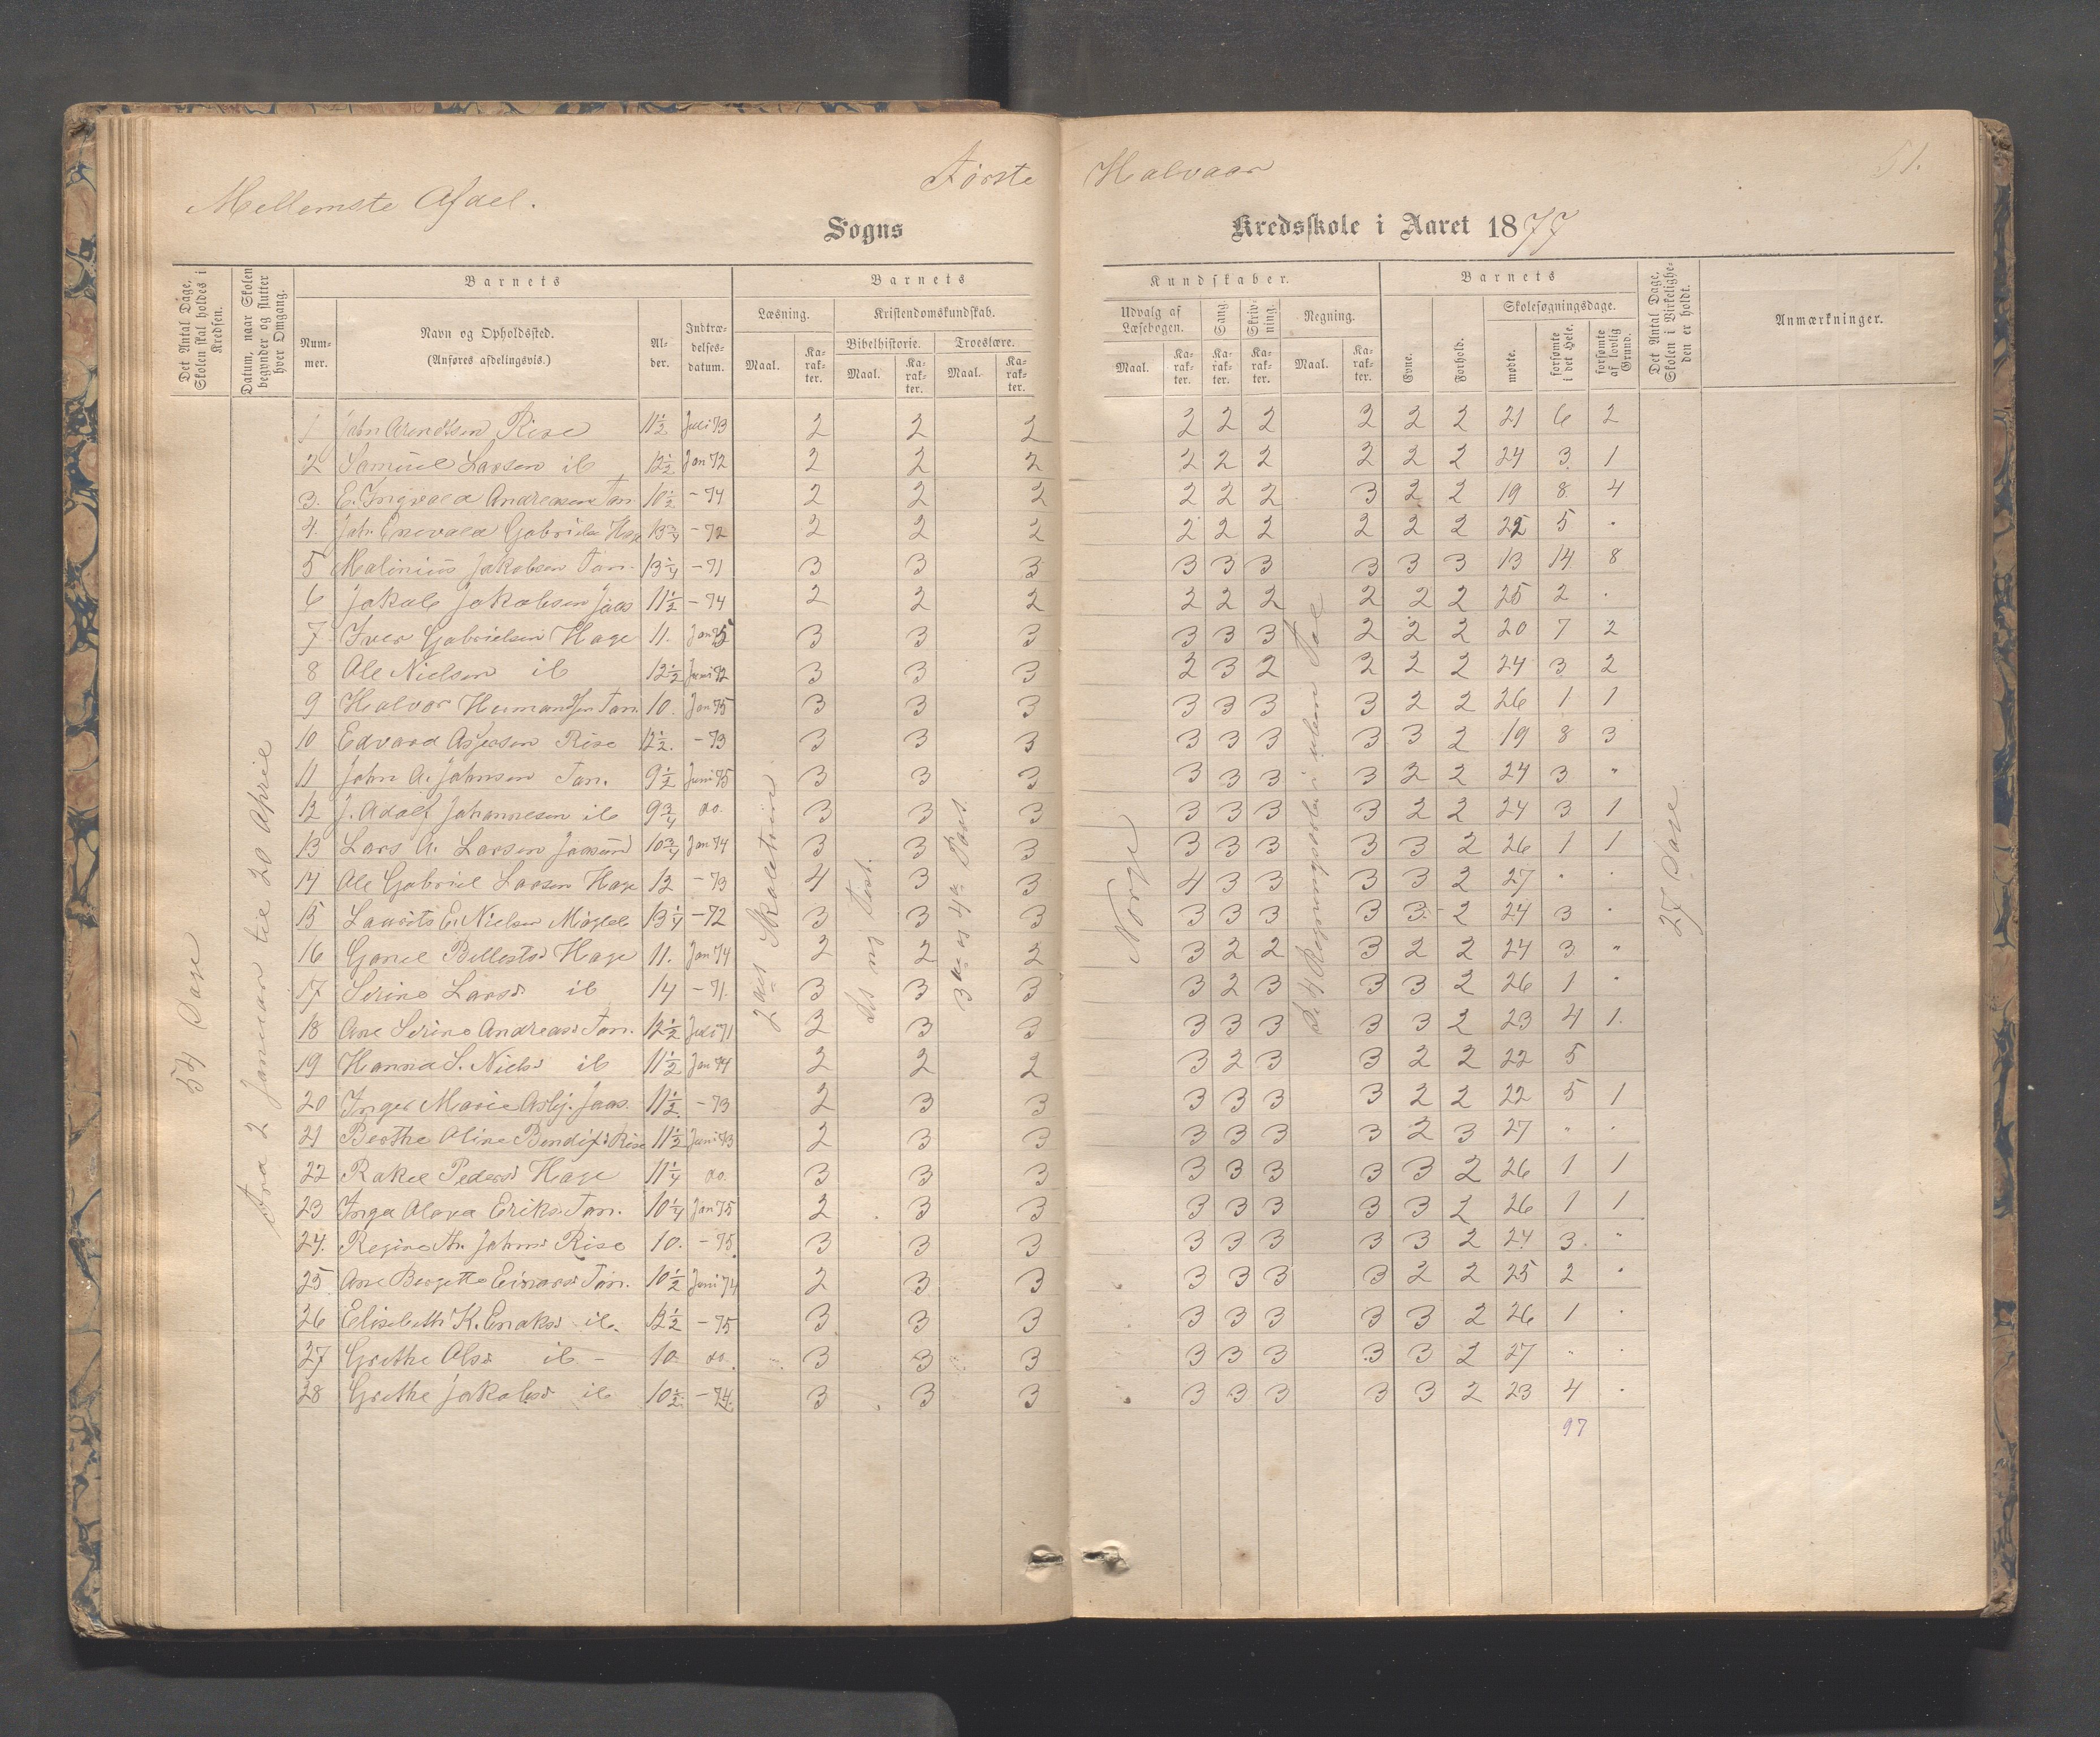 Første Halvaar 51.
Mellemste Afdel.
Sogns Kredsskole i Aaret 1877
Det Antal Dage, Skolen skal holdes i Kredsen.
Datum, naar Skolen begynder og slutter hver Omgang.
Barnets
Nummer.
Navn og Opholdssted.
(Anføres afdelingsvis.)
Alder.
Indtrædelsesdatum.
Barnets Kundskaber.
Læsning. Kristendomskundskab. Udvalg af Læsebogen. Sang. Skrivning. Regning.
Bibelhistorie. Troeslære.
Maal. Karakter. Maal. Karakter. Maal. Karakter. Maal. Karakter. Karakter. Karakter. Maal. Karakter.
Barnets
Evne. Forhold. Skolesøgningsdage.
mødte. forsømte i det Hele. forsømte af lovlig Grund.
Det Antal Dage, Skolen i Virkeligheden er holdt.
Anmærkninger.
54 Dage
Fra 2 Januar til 20 April
2den Skoletrin
3die og 4de Part.
Norge
27 Dage
1 John Arendtsen Rise 11½ Juli 73 2 2 2 2 2 2 2 2 2 21 6 2
2 Samuel Larsen ib 12½ Jan 72 2 2 2 2 2 2 2 2 2 24 3 1
3. E. Ingvald Andreasen Tan. 10½ -74 2 2 2 2 2 2 3 2 2 19 8 4
4. Joh. Enevald Gabriels. Hage 13¾ -72 2 2 2 2 2 2 2 2 2 22 5 .
5 Malinius Jakobsen Tan. 13¼ -71 3 3 3 3 3 3 3 3 3 13 14 8
6 Jakob Jakobsen Jaas 11½ -74 2 2 2 2 2 2 2 2 2 25 2 .
7 Iver Gabrielsen Hage 11. Jan 75 3 3 3 3 3 3 2 2 2 20 7 2
8 Ole Nielsen ib 12½ Juni 72 3 3 3 2 3 2 2 2 2 24 3 2
9 Halvor Humandsen Tan. 10. Jan 75 3 3 3 3 3 3 3 2 2 26 1 1
10 Edvard Asjersen Rise 12½. -73 3 3 3 3 3 3 3 3 2 19 8 3
11 John A. Johnsen Tan. 9½ Juni 75 3 3 3 3 3 3 3 2 2 24 3 "
12 J. Adolf Johannesen ib 9¾ do. 3 3 3 3 3 3 3 2 2 24 3 1
13 Lars A. Larsen Jaasund 10¾ Jan 74 3 3 3 3 3 3 3 3 2 26 1 1
14 Ole Gabriel Larsen Hage 12 -73 4 3 3 4 3 3 3 3 2 27 . .
15 Laurits E. Nielsen 13¼ -72 3 3 3 3 3 3 3 3 2 24 3 .
16 Gonil Bellestsd Hage 11. Jan 74 2 2 2 3 2 2 3 2 2 24 3 "
17 Serine Larsd ib 14 -71. 3 3 3 3 2 3 3 3 2 26 1 .
18 Ane Serine Andreasd Tan. 12½ Juli 71 2 3 3 3 3 3 3 3 2 23 4 1.
19 Hanna S. Nielsd ib 11½ Jan 74 2 2 2 3 2 3 3 2 2 22 5
20 Inger Marie Asbj. Jaas. 11½. -73 2 3 3 3 3 3 3 2 2 22 5 1
21 Berthe Oline Bendixd Rise 11½ Juni 73 2 3 3 3 3 3 3 2 3 27 " .
22 Rakel Pedersd Hage 11¼ do. 3 3 3 3 3 3 3 3 2 26 1 1
23 Inga Olava Eriksd Tan. 10¼ Jan 75 2 3 3 3 3 3 3 3 2 26 1 1
24. Regine M. Johnsd Rise 10. -75. 3 3 3 3 3 3 3 3 2 24 3. "
25 Ane Bergitte Einarsd Tan. 10½ Juni 74 2 3 3 3 3 3 3 2 2 25 2 .
26 Elisabeth K. Enoksd ib. 12½ -75 3 3 3 3 3 3 3 3 2 26 1 .
27 Grethe Olsd ib - 10 do. 3 3 3 3 3 3 3 3 2 27 " .
28 Grethe Jakobsd ib 10½. -74. 3 3 3 3 3 3 3 3 2 23 4 .
97